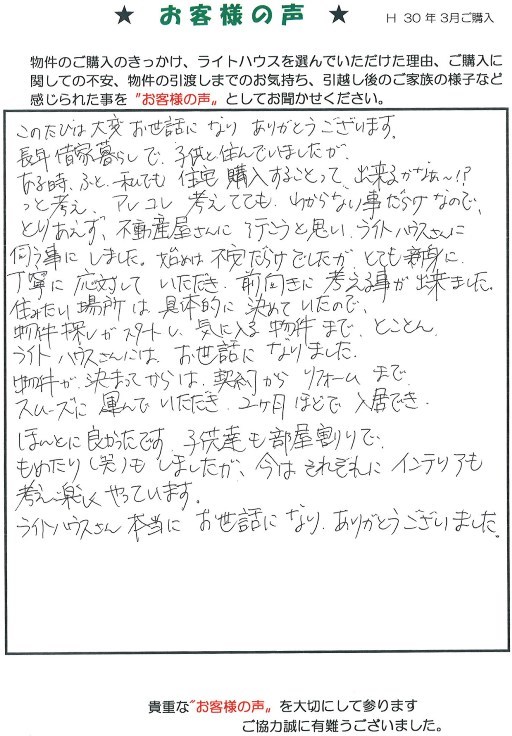 ★ お客様の声 ★
H 30 年 3月ご購入
物件のご購入のきっかけ、ライトハウスを選んでいただけた理由、ご購入に
関しての不安、物件の引渡しまでのお気持ち、引越し後のご家族の様子など
感じられた事を〝お客様の声〟としてお聞かせください。
このたびは大変お世話になり ありがとうございます。
長年 借家暮らしで、子供と住んでいましたが、
ある時、ふと、私でも 住宅 購入することって、出来るかなぁ〜!?
っと考え、アレコレ 考えてても、わからない事だらけなので、
とりあえず、不動産屋さんに 行こうと思い、ライトハウスさんに
伺う事に しました。始めは 不安だらけでしたが、とても親身に、
丁寧に 応対して いただき、前向きに 考える事が 出来ました。
住みたい 場所 は 具体的に 決めて いたので、
物件 探しが スタートし、気に入る 物件 まで、とことん、
ライトハウスさんには、お世話に なりました。
物件が、決まってからは、契約から リフォーム まで、
スムーズに 運んで いただき、2ヶ月 ほどで 入居でき、
ほんとに 良かったです。子供達も 部屋割りで、
もめたり (笑)も しましたが、今は それぞれに インテリアも
考え、楽しく やっています。
ライトハウスさん 本当に お世話に なり、ありがとうございました。
貴重な〝お客様の声〟を大切にして参ります
ご協力誠に有難うございました。